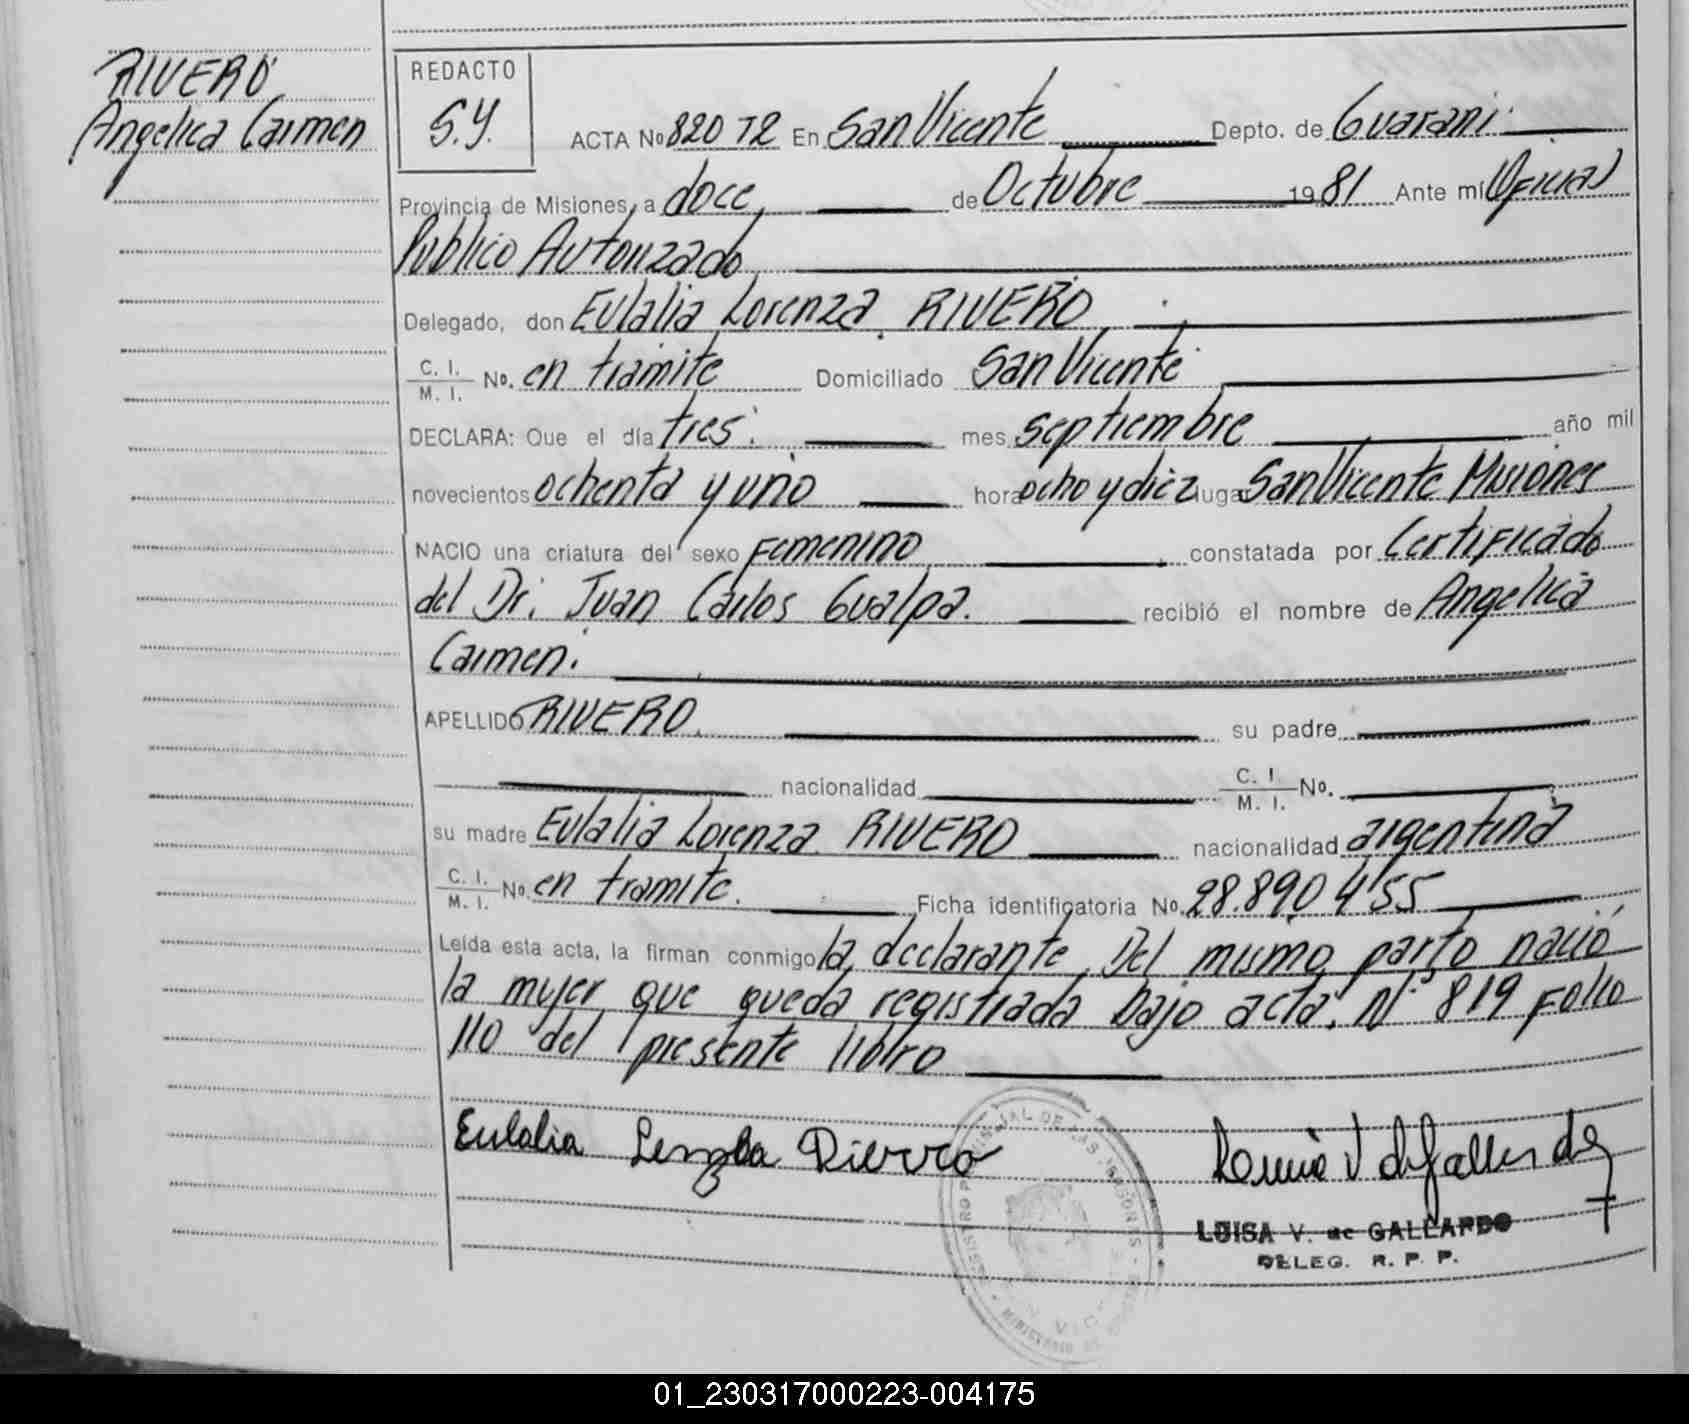 RIVERO
Angelica Carmen
REDACTO
S.Y.
ACTA No 820 T2 En San Vicente Depto. de Guarani
Provincia de Misiones, a doce, de Octubre 1981 Ante mí Oficial
Publico Autorizado
Delegado, don Eulalia Lorenza RIVERO
C. I. / M. I. No. en tramite Domiciliado San Vicente
DECLARA: Que el día tres. mes septiembre año mil
novecientos ochenta y uno hora ocho y diez lugar San Vicente Misiones
NACIO una criatura del sexo Femenino constatada por Certificado
del Dr. Juan Carlos Gualpa. recibió el nombre de Angelica
Carmen.
APELLIDO RIVERO su padre
nacionalidad C. I. / M. I. No.
su madre Eulalia Lorenza RIVERO nacionalidad argentina
C. I. / M. I. No. en tramite. Ficha identificatoria No. 28.890.455
Leída esta acta, la firman conmigo la declarante, Del mismo parto nació
la mujer que queda registrada bajo acta N° 819 Folio
110 del presente libro
Eulalia
LUISA V. de GALLARDO
DELEG. R. P. P.
01_230317000223-004175